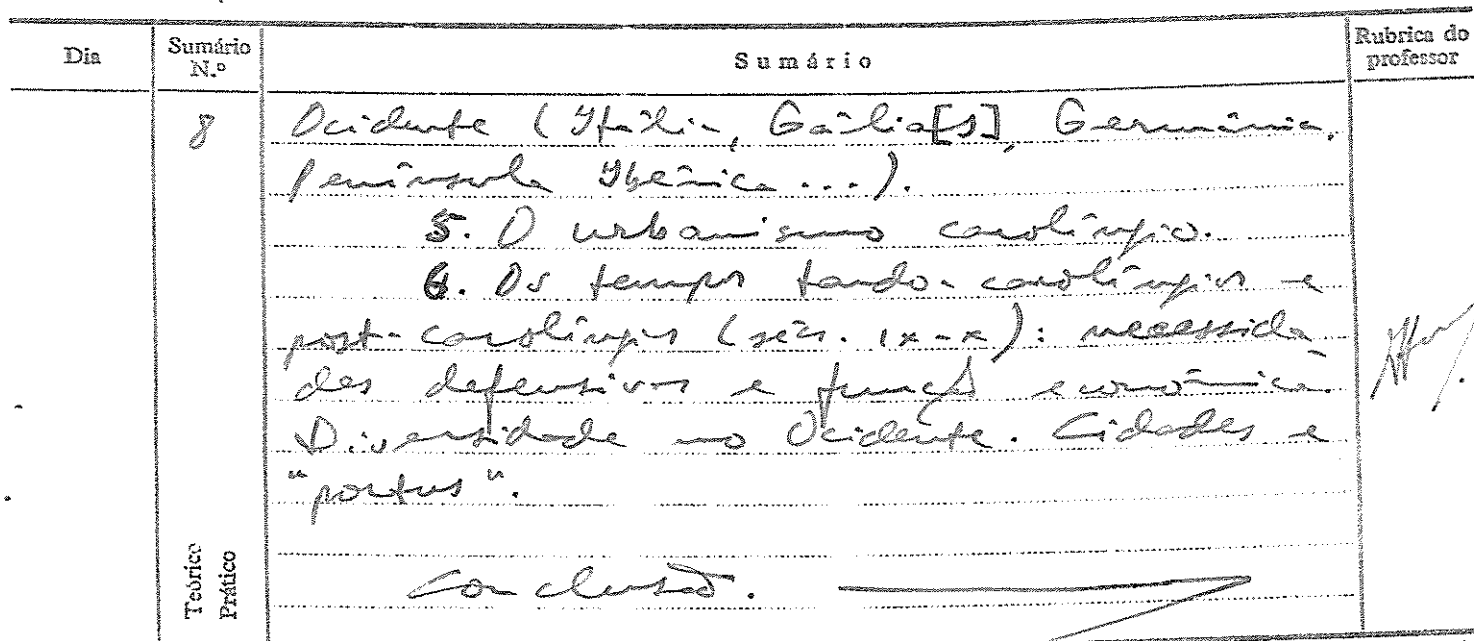 Dia
Sumário N.º
Sumário
Rubrica do professor
8
Ocidente (Itália, Gália[s], Germânia,
Península Ibérica ...).
5. O urbanismo carolíngio.
6. Os tempos tardo-carolíngios e
post-carolíngios (sécs. IX-X): necessida-
des defensivas e função económica.
Diversidade no Ocidente. Cidades e
"portus".
Conclusão.
Teórico
Prático